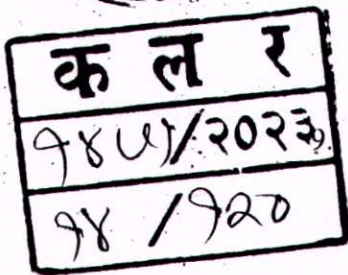 क ल र
१४५/२०२३
१४ /१२०